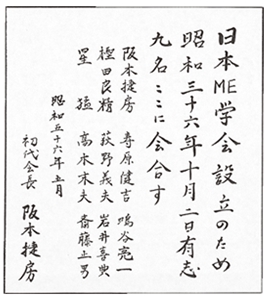 日本ME学会設立のため
昭和三十六年十月二日有志
九名ここに会合す
阪本捷房 寿原健吉 鴫谷亮一
樫田良精 荻野義夫 岩井喜典
星 猛 高木末夫 斎藤正男
昭和五六年五月
初代会長 阪本捷房